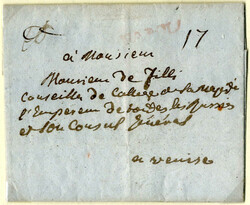 17
à Monsieur
Monsieur de Tilli
Conseiller de College de sa Maj
l'Empereur de toutes les Russies
et son Consul Général
a venise